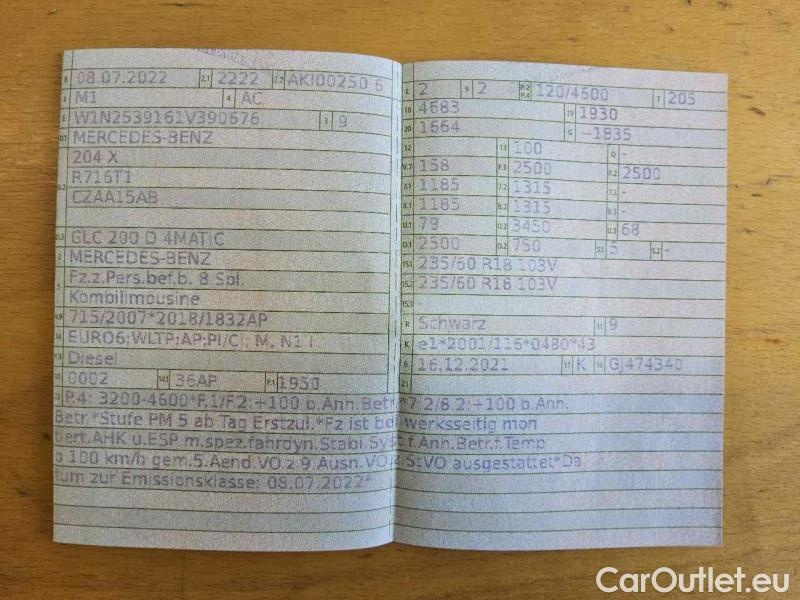 B 08.07.2022 2.1 2222 2.2 AKI00250 6
J M1 4 AC
E W1N2539161V390676 3 9
D.1 MERCEDES-BENZ
204 X
D.2 R716T1
CZAA15AB
D.3 GLC 200 D 4MATIC
2 MERCEDES-BENZ
5 Fz.z.Pers.bef.b. 8 Spl.
Kombilimousine
V.9 715/2007*2018/1832AP
14 EURO6;WLTP;AP;PI/CI; M, N1 I
P.3 Diesel
10 0002 14.1 36AP P.1 1950
L 2 9 2 P.2 P.4 120/4600 T 205
18 4683 19 1930
20 1664 G —1835
12 13 100 Q -
V.7 158 F.1 2500 F.2 2500
7.1 1185 7.2 1315 7.3 -
8.1 1185 8.2 1315 8.3 -
U.1 79 U.2 3450 U.3 68
O.1 2500 O.2 750 S.1 5 S.2 -
15.1 235/60 R18 103V
15.2 235/60 R18 103V
15.3 -
R Schwarz 11 9
K e1*2001/116*0480*43
6 16.12.2021 17 K 16 GJ474340
21
22 P.4: 3200-4600*F.1/F.2:+100 b.Anh.Betr.*7.2/8.2:+100 b.Anh.
Betr.*Stufe PM 5 ab Tag Erstzul.*Fz ist bei werksseitig mon
tiert.AHK u.ESP m.spez.fahrdyn.Stabi.Syst f.Anh.Betr.f.Temp
o 100 km/h gem.5.Aend.VO.z 9.Ausn.VO.z StVO ausgestattet*Da
tum zur Emissionsklasse: 08.07.2022*
CarOutlet.eu